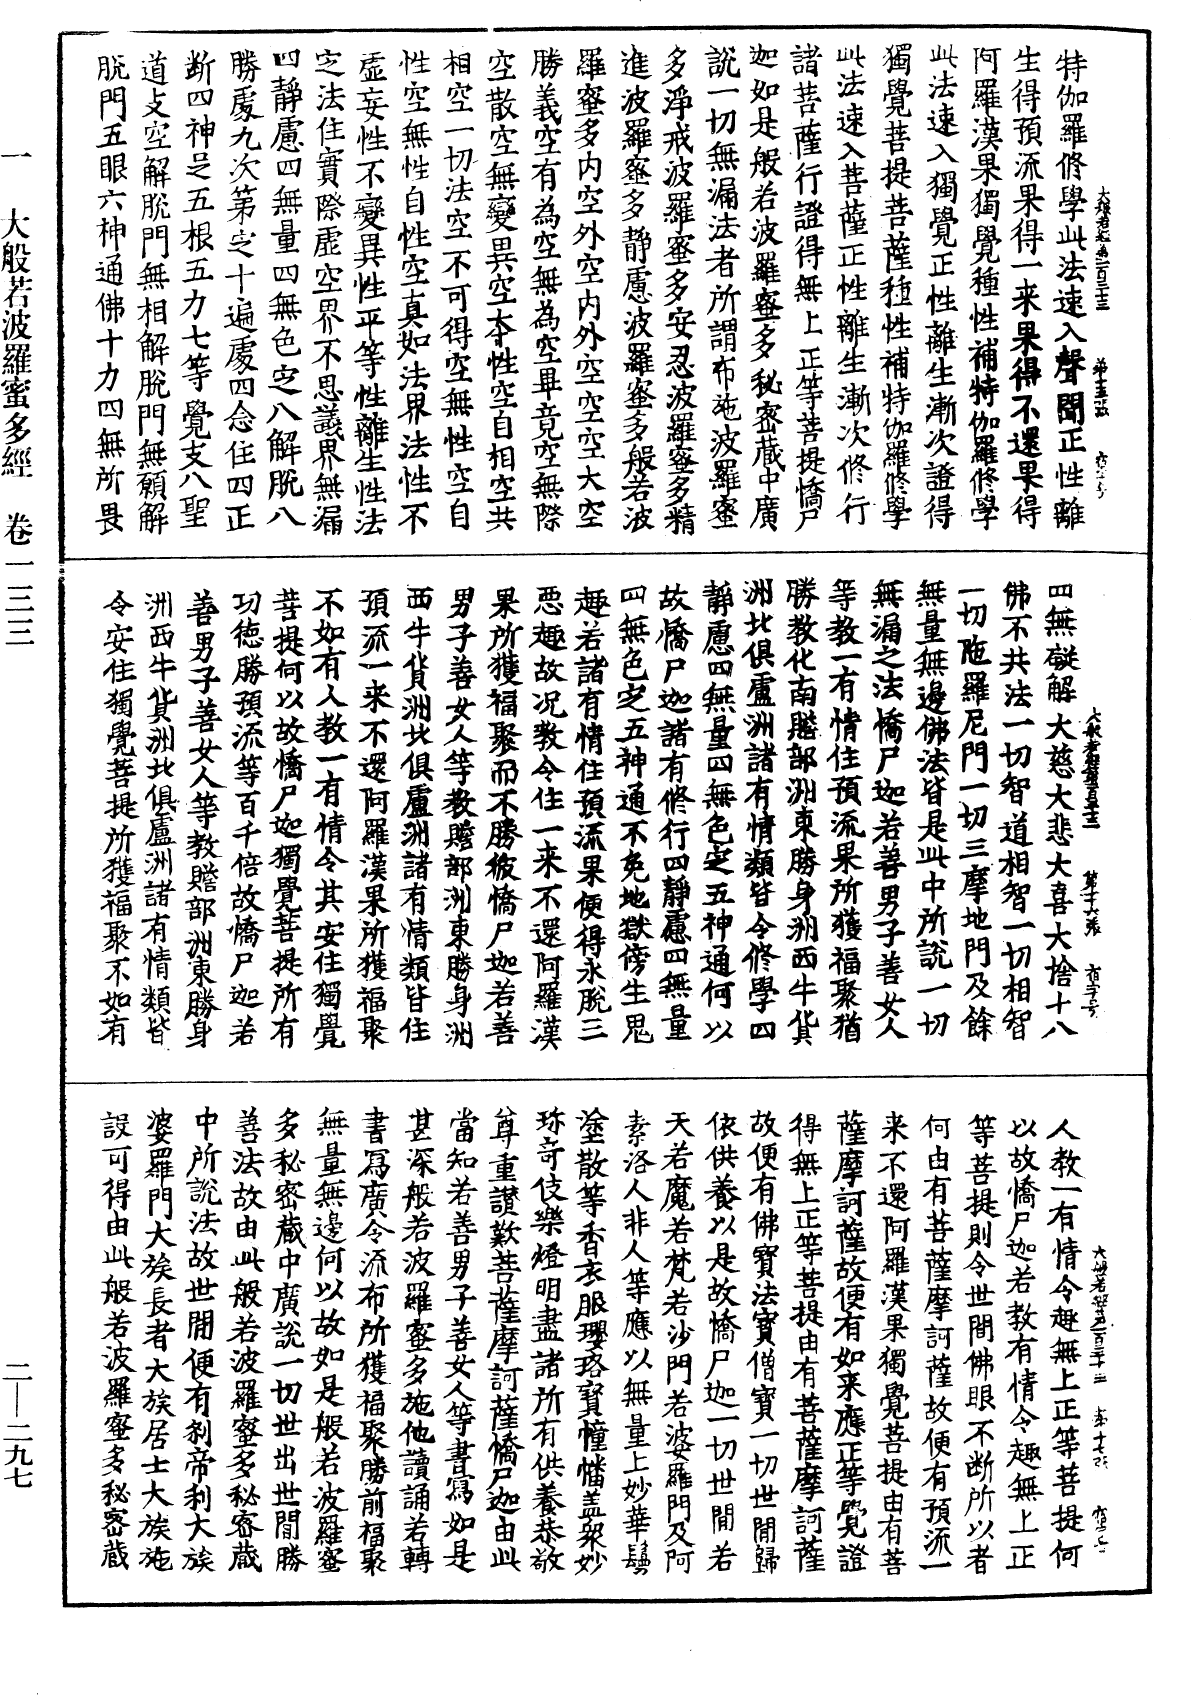 特伽羅修學此法速入聲聞正性離
生得預流果得一来果得不還果得
阿羅漢果獨覺種性補特伽羅修學
此法速入獨覺正性離生漸次證得
獨覺菩提菩薩種性補特伽羅修學
此法速入菩薩正性離生漸次修行
諸菩薩行證得無上正等菩提憍尸
迦如是般若波羅蜜多秘密蔵中廣
說一切無漏法者所謂布施波羅蜜
多淨戒波羅蜜多安忍波羅蜜多精
進波羅蜜多靜慮波羅蜜多般若波
羅蜜多內空外空內外空空空大空
勝義空有為空無為空畢竟空無際
空散空無變異空本性空自相空共
相空一切法空不可得空無性空自
性空無性自性空真如法界法性不
虛妄性不變異性平等性離生性法
定法住實際虛空界不思議界無漏
四靜慮四無量四無色定八解脫八
勝處九次第定十遍處四念住四正
断四神足五根五力七等覺支八聖
道支空解脫門無相解脫門無願解
脫門五眼六神通佛十力四無所畏
四無礙解大慈大悲大喜大捨十八
佛不共法一切智道相智一切相智
一切陁羅尼門一切三摩地門及餘
無量無邊佛法皆是此中所說一切
無漏之法憍尸迦若善男子善女人
等教一有情住預流果所獲福聚猶
勝教化南贍部洲東勝身洲西牛貨
洲北俱盧洲諸有情類皆令修學四
靜慮四無量四無色定五神通何以
故憍尸迦諸有修行四靜慮四無量
四無色定五神通不免地獄傍生鬼
趣若諸有情住預流果便得永脫三
惡趣故况教令住一来不還阿羅漢
果所獲福聚而不勝彼憍尸迦若善
男子善女人等教贍部洲東勝身洲
西牛貨洲北俱盧洲諸有情類皆住
預流一来不還阿羅漢果所獲福聚
不如有人教一有情令其安住獨覺
菩提何以故憍尸迦獨覺菩提所有
功德勝預流等百千倍故憍尸迦若
善男子善女人等教贍部洲東勝身
洲西牛貨洲北俱盧洲諸有情類皆
令安住獨覺菩提所獲福聚不如有
人教一有情令趣無上正等菩提何
以故憍尸迦若教有情令趣無上正
等菩提則令世間佛眼不断所以者
何由有菩薩摩訶薩故便有預流一
来不還阿羅漢果獨覺菩提由有菩
薩摩訶薩故便有如来應正等覺證
得無上正等菩提由有菩薩摩訶薩
故便有佛寶法寶僧寶一切世間歸
依供養以是故憍尸迦一切世間若
天若魔若梵若沙門若婆羅門及阿
素洛人非人等應以無量上妙華鬘
塗散等香衣服瓔珞寶幢幡盖衆妙
珎奇伎樂燈明盡諸所有供養恭敬
尊重讃歎菩薩摩訶薩憍尸迦由此
當知若善男子善女人等書寫如是
甚深般若波羅蜜多施他讀誦若轉
書寫廣令流布所獲福聚勝前福聚
無量無邊何以故如是般若波羅蜜
多秘密蔵中廣說一切世出世間勝
善法故由此般若波羅蜜多秘密蔵
中所說法故世間便有刹帝利大族
婆羅門大族長者大族居士大族施
設可得由此般若波羅蜜多秘密蔵
一 大般若波羅蜜多經 卷一三三
二—二九七